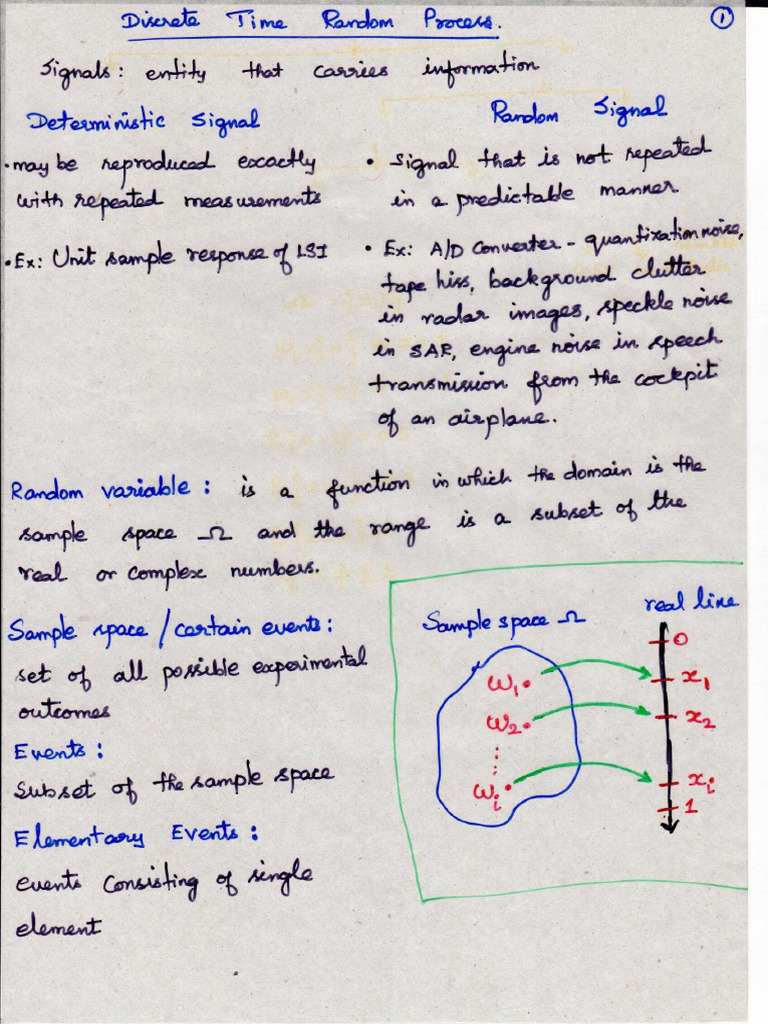 Discrete Time Random Process.
1
Signals: entity that carries information
Deterministic Signal
• may be reproduced exactly
with repeated measurements
• Ex: Unit sample response of LSI
Random Signal
• Signal that is not repeated
in a predictable manner
• Ex: A/D Converter - quantixation noise,
tape hiss, background clutter
in radar images, speckle noise
in SAR, engine noise in speech
transmission from the cockpit
of an airplane.
Random variable: is a function in which the domain is the
sample space Ω and the range is a subset of the
real or complex numbers.
Sample space / certain events:
set of all possible experimental
outcomes
Events:
Subset of the sample space
Elementary Events:
events consisting of single
element
Sample space Ω
real line
0
ω1
x1
ω2
x2
ωi
xi
1